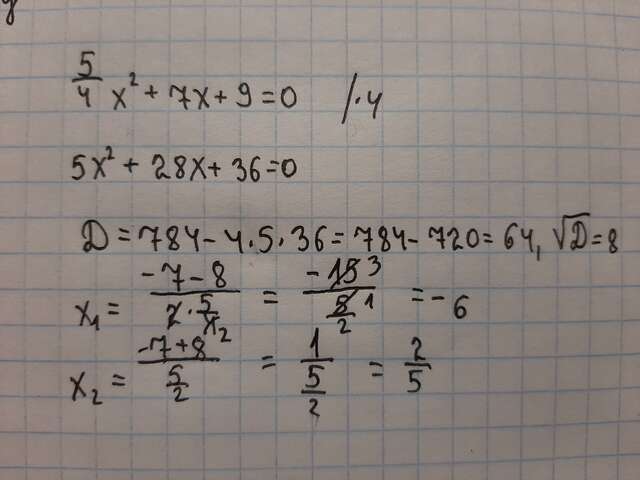 5/4 x² + 7x + 9 = 0 /·4
5x² + 28x + 36 = 0
D = 784 - 4·5·36 = 784 - 720 = 64, √D = 8
x₁ = (-7 - 8)/(2·5/4 2) = (-15 3)/(5/2 1) = -6
x₂ = (-7 + 8)/(5/2) = 1/(5/2) = 2/5